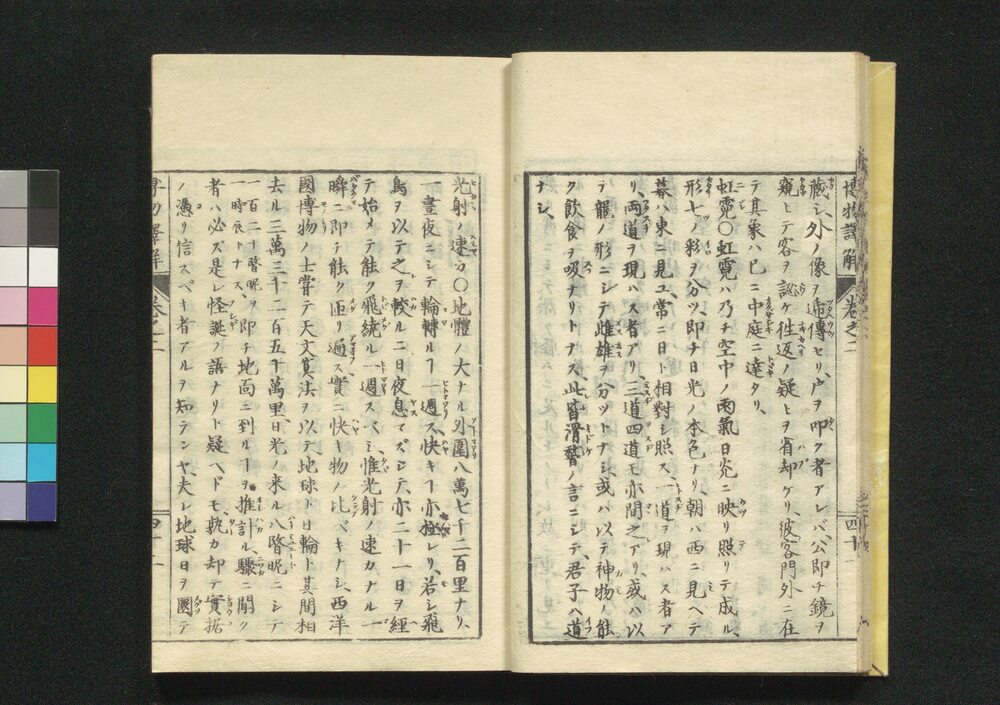 博物譯解
卷之二
四十
藏シ、外ノ像ヲ遞傳セリ、戸ヲ叩ク者アレバ、公即チ鏡ヲ
窺ヒテ客ヲ認ケ徃返ノ疑ヒヲ省却ケリ、彼客門外ニ在
テ其象ハ已ニ中庭ニ達タリ、
虹霓〇虹霓ハ乃チ空中ノ雨氣日光ニ映リ照リテ成ル、
形七ノ彩ヲ分ツ、即チ日光ノ本色ナリ、朝ハ西ニ見ヘテ
暮ハ東ニ見エ、常ニ日ト相對シ照ス、一道ヲ現ハス者ア
リ、両道ヲ現ハス者アリ、三道四道モ亦間之アリ、或ハ以
テ龍ノ形ニシテ雌雄ヲ分ツトナシ、或ハ以テ神物ノ能
ク飲食ヲ吸ナリトナス、此皆滑稽ノ言ニシテ、君子ハ道
ナシ、
光射ノ速力〇地體ノ大ナル外圍八萬七千二百里ナリ、
一晝夜ニシテ輪轉ルヿ一週ス、快キヿ亦極レリ、若シ飛
鳥ヲ以テ之ヲ較ルニ日夜息マズシテ、亦二十一日ヲ經
テ始メテ能ク飛繞ル一週スベシ、惟光射ノ速カナル一
瞬ニ即チ能ク匝リ過ス實ニ快キ物ノ比ベキナシ、西洋
國博物ノ士嘗テ天文算法ヲ以テ地球ト日輪ト其間相
去ル三萬三千二百五十萬里、日光ノ来ル八瞖呢ニシテ
一百二十瞖呢ヲ一時辰トナス、即チ地面ニ到ルヿヲ推計ル、驟ニ聞ク
者ハ必ズ是レ怪誕ノ語ナリト疑ヘドモ、孰カ却テ實据
ノ憑リ信スベキ者アルヲ知テンヤ、夫レ地球日ヲ圜テ
卷之二
四十一